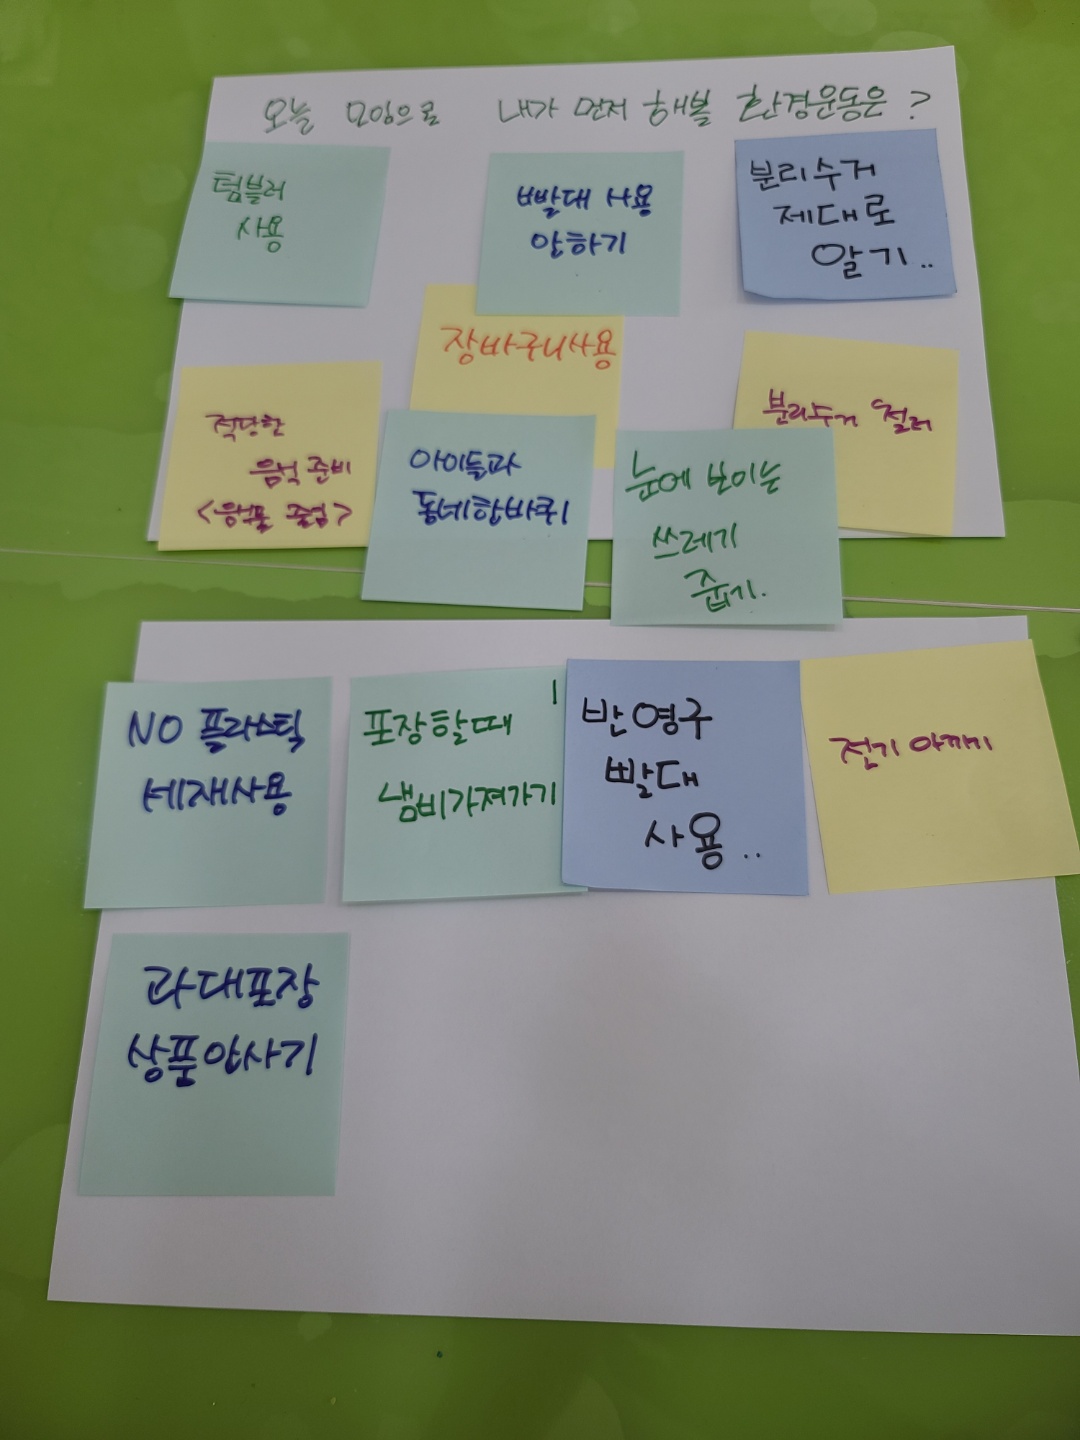 오늘 모임으로 내가 먼저 해볼 환경운동은?
텀블러
사용
빨대 사용
안하기
분리수거
제대로
알기..
장바구니사용
적당한
음식 준비
<음식물 줄임>
아이들과
동네한바퀴
눈에 보이는
쓰레기
줍기.
분리수거 철저
NO 플라스틱
세재사용
포장할때
냄비가져가기
반영구
빨대
사용..
전기 아끼기
과대포장
상품안사기